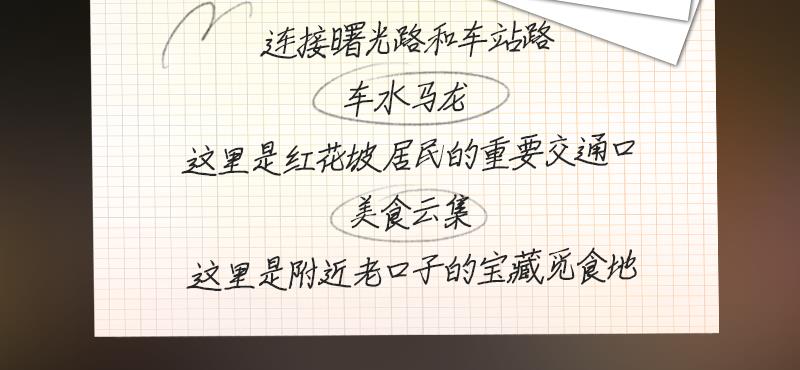 连接曙光路和车站路
车水马龙
这里是红花坡居民的重要交通口
美食云集
这里是附近老口子的宝藏觅食地